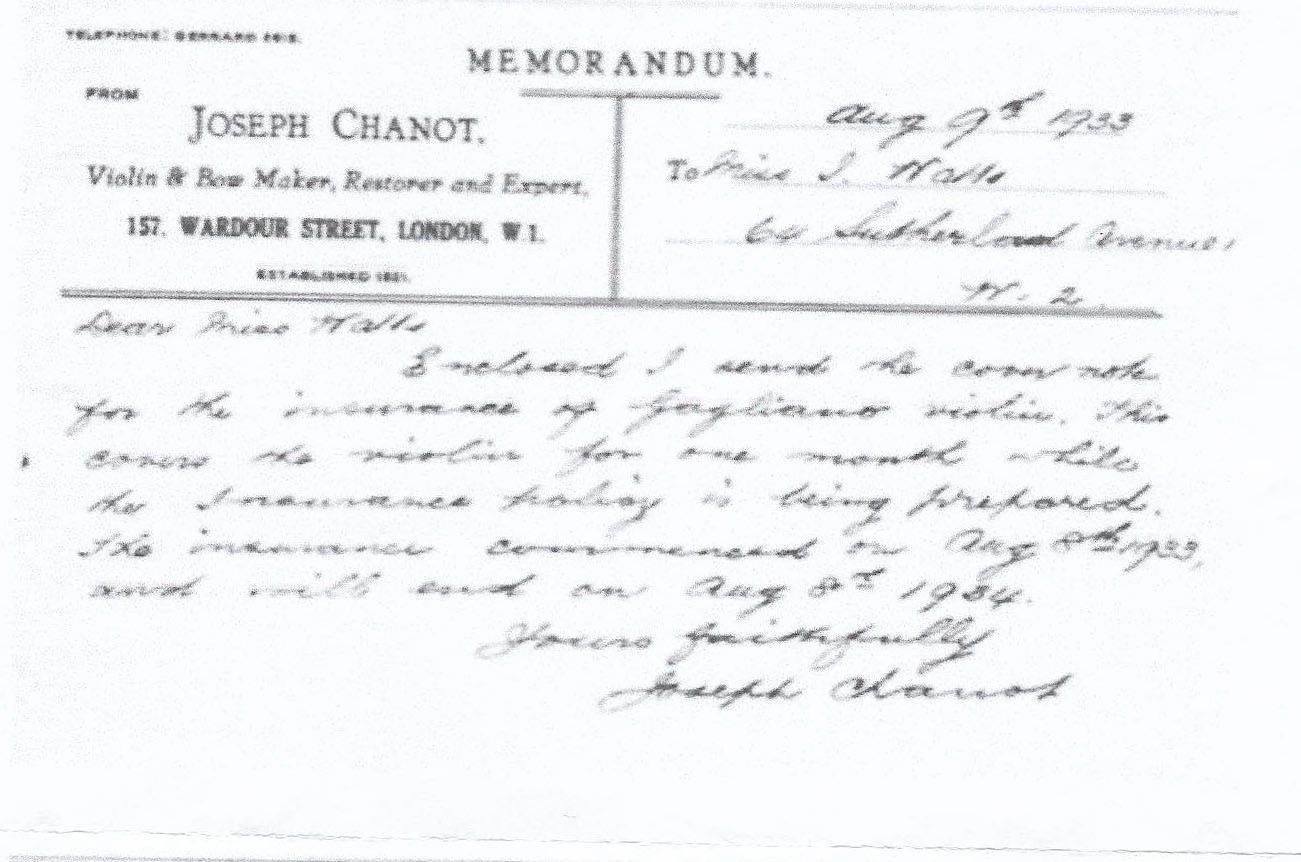 TELEPHONE: GERRARD
MEMORANDUM.
FROM
JOSEPH CHANOT,
Violin & Bow Maker, Restorer and Expert,
157, WARDOUR STREET, LONDON, W 1.
ESTABLISHED 1821.
Aug 9th 1933
To Miss I. Watts
64 Sutherland Avenue,
W. 2.
Dear Miss Watts
Enclosed I send the cover note
for the insurance of Gagliano violin. This
covers the violin for one month while
the Insurance policy is being prepared.
The insurance commenced on Aug 8th 1933,
and will end on Aug 8th 1934.
Yours faithfully
Joseph Chanot